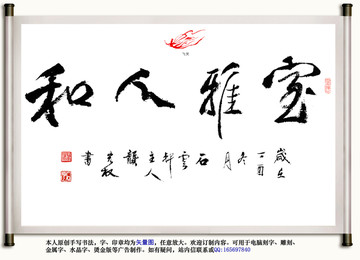 室雅人和
歲在丁酉冬月石雲軒主人龔書
本人原创手写书法，字、印章均为矢量图，任意放大，欢迎订制内容，可用于电脑刻字、雕刻、
金属字、水晶字、烫金版等广告制作。如有疑问，站内信联系或QQ:165697840